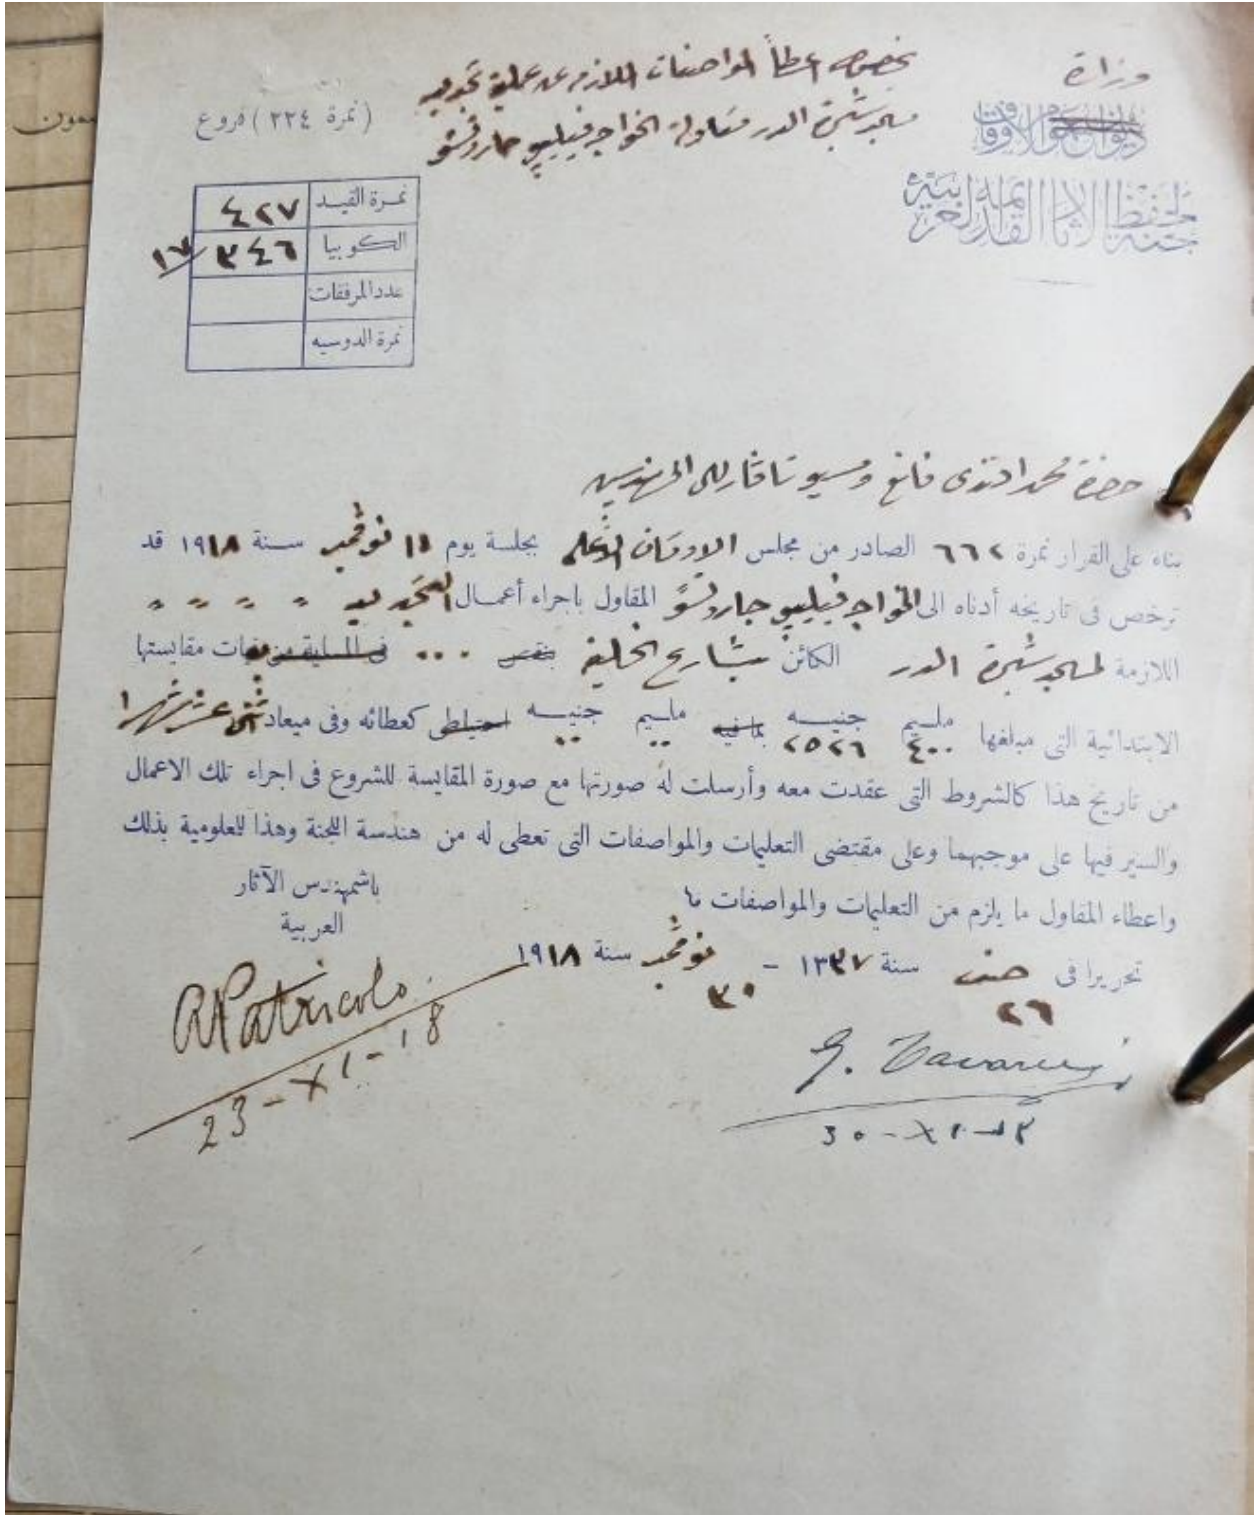 وزارة
ديوان عموم الاوقاف
لجنة حفظ الآثار القديمة العربية
بخصوص اعطاء المواصفات اللازمة عن عملية تجديد
مسجد شجرة الدر مقاولة الخواجه فيليبو جاروتسو
(نمرة ٢٢٤) فروع
نمرة القيد ٤٢٧
الكوبيا ٣٤٦/١٧
عدد المرفقات
نمرة الدوسيه
حضرة محمد افندى فاتح ومسيو تافارللى المهندسين
بناء على القرار نمرة ٦٦٢ الصادر من مجلس الاوقاف الأعلى بجلسة يوم ١١ نوفمبر سنة ١٩١٨ قد
ترخص فى تاريخه أدناه الى الخواجه فيليبو جاروتسو المقاول باجراء أعمال التجديد
اللازمة لمسجد شجرة الدر الكائن بشارع الخليفة بقسم ... مقايستها
الابتدائية التى مبلغها مليم ٤٠٠ جنيه ٢٥٢٦ بما فيه مليم .. جنيه .. احتياطى كعطائه وفى ميعاد اثنى عشر شهرا
من تاريخ هذا كالشروط التى عقدت معه وأرسلت له صورتها مع صورة المقايسة للشروع فى اجراء تلك الاعمال
والسير فيها على موجبهما وعلى مقتضى التعليمات والمواصفات التى تعطى له من هندسة اللجنة وهذا للعلومية بذلك
واعطاء المقاول ما يلزم من التعليمات والمواصفات ما
باشمهندس الآثار
العربية
تحريرا فى ٢٦ صفر سنة ١٣٣٧ - ٣٠ نوفمبر سنة ١٩١٨
A Patricolo
23-XI-18
30-XI-18